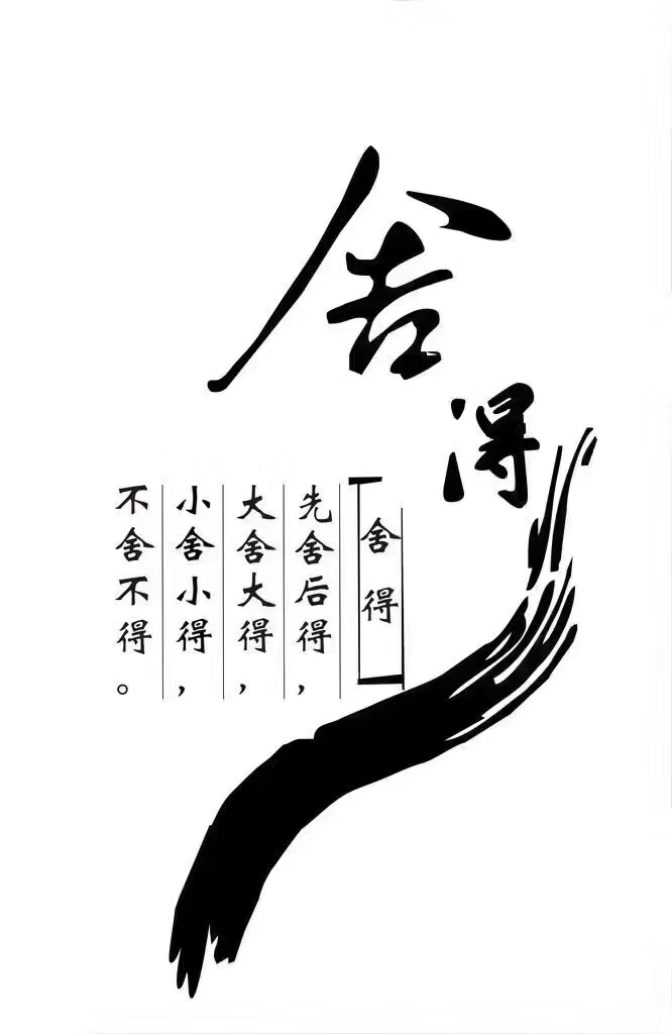 舍得
舍得
先舍后得，
大舍大得，
小舍小得，
不舍不得。